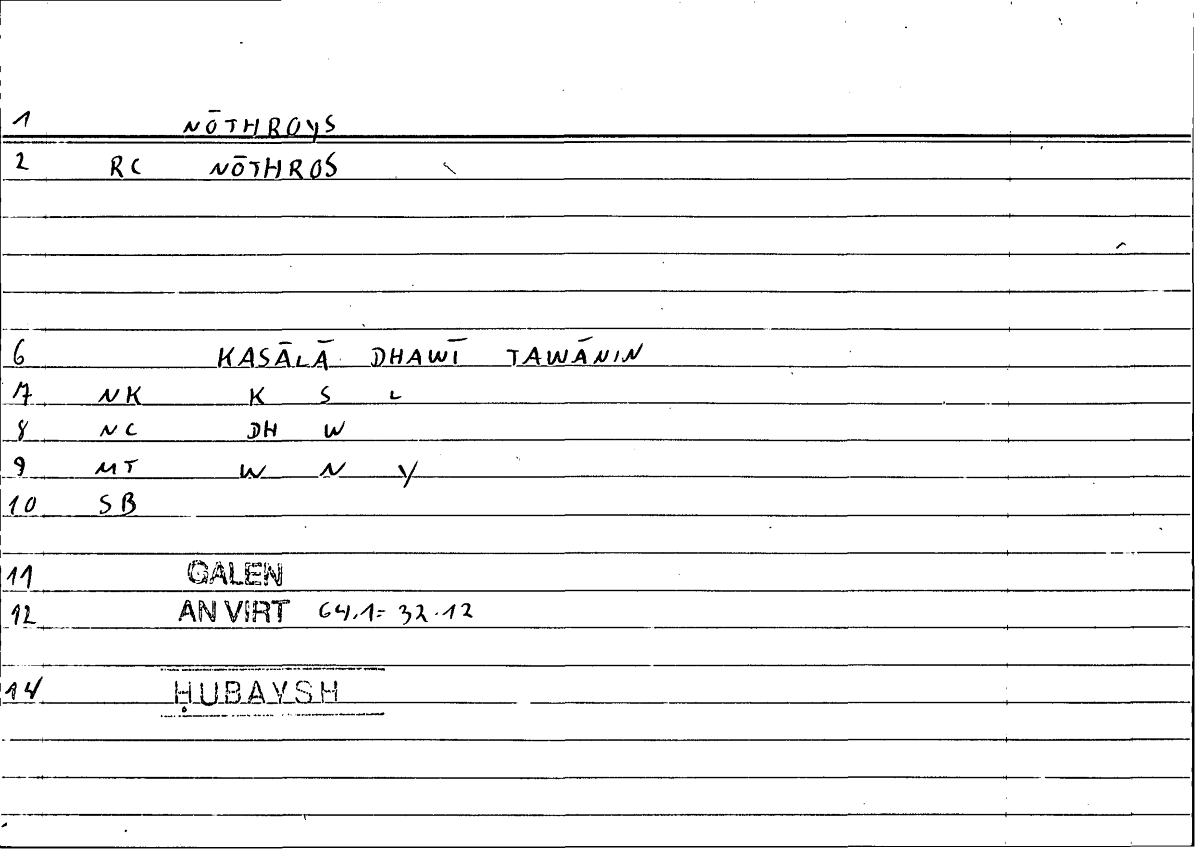 1 NŌTHROYS
2 RC NŌTHROS
6 KASĀLĀ DHAWĪ TAWĀNIN
7 NK K S L
8 NC DH W
9 MT W N Y
10 SB
11 GALEN
12 AN VIRT 64.1= 32.12
14 ḤUBAYSH